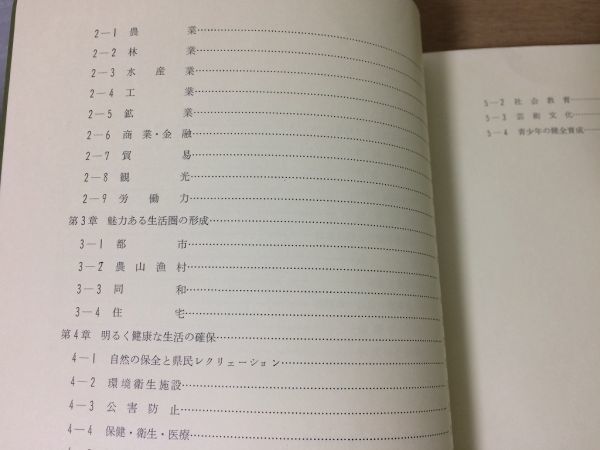 2—1 農業
2—2 林業
2—3 水産業
2—4 工業
2—5 鉱業
2—6 商業・金融
2—7 貿易
2—8 観光
2—9 労働力
第3章 魅力ある生活圏の形成
3—1 都市
3—2 農山漁村
3—3 同和
3—4 住宅
第4章 明るく健康な生活の確保
4—1 自然の保全と県民レクリェーション
4—2 環境衛生施設
4—3 公害防止
4—4 保健・衛生・医療
5—2 社会教育
5—3 芸術文化
5—4 青少年の健全育成